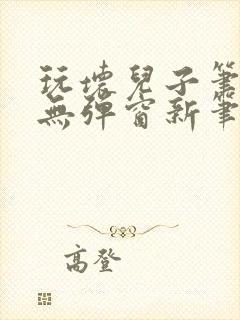 玩壞兒子筆
無彈窗新筆
高登